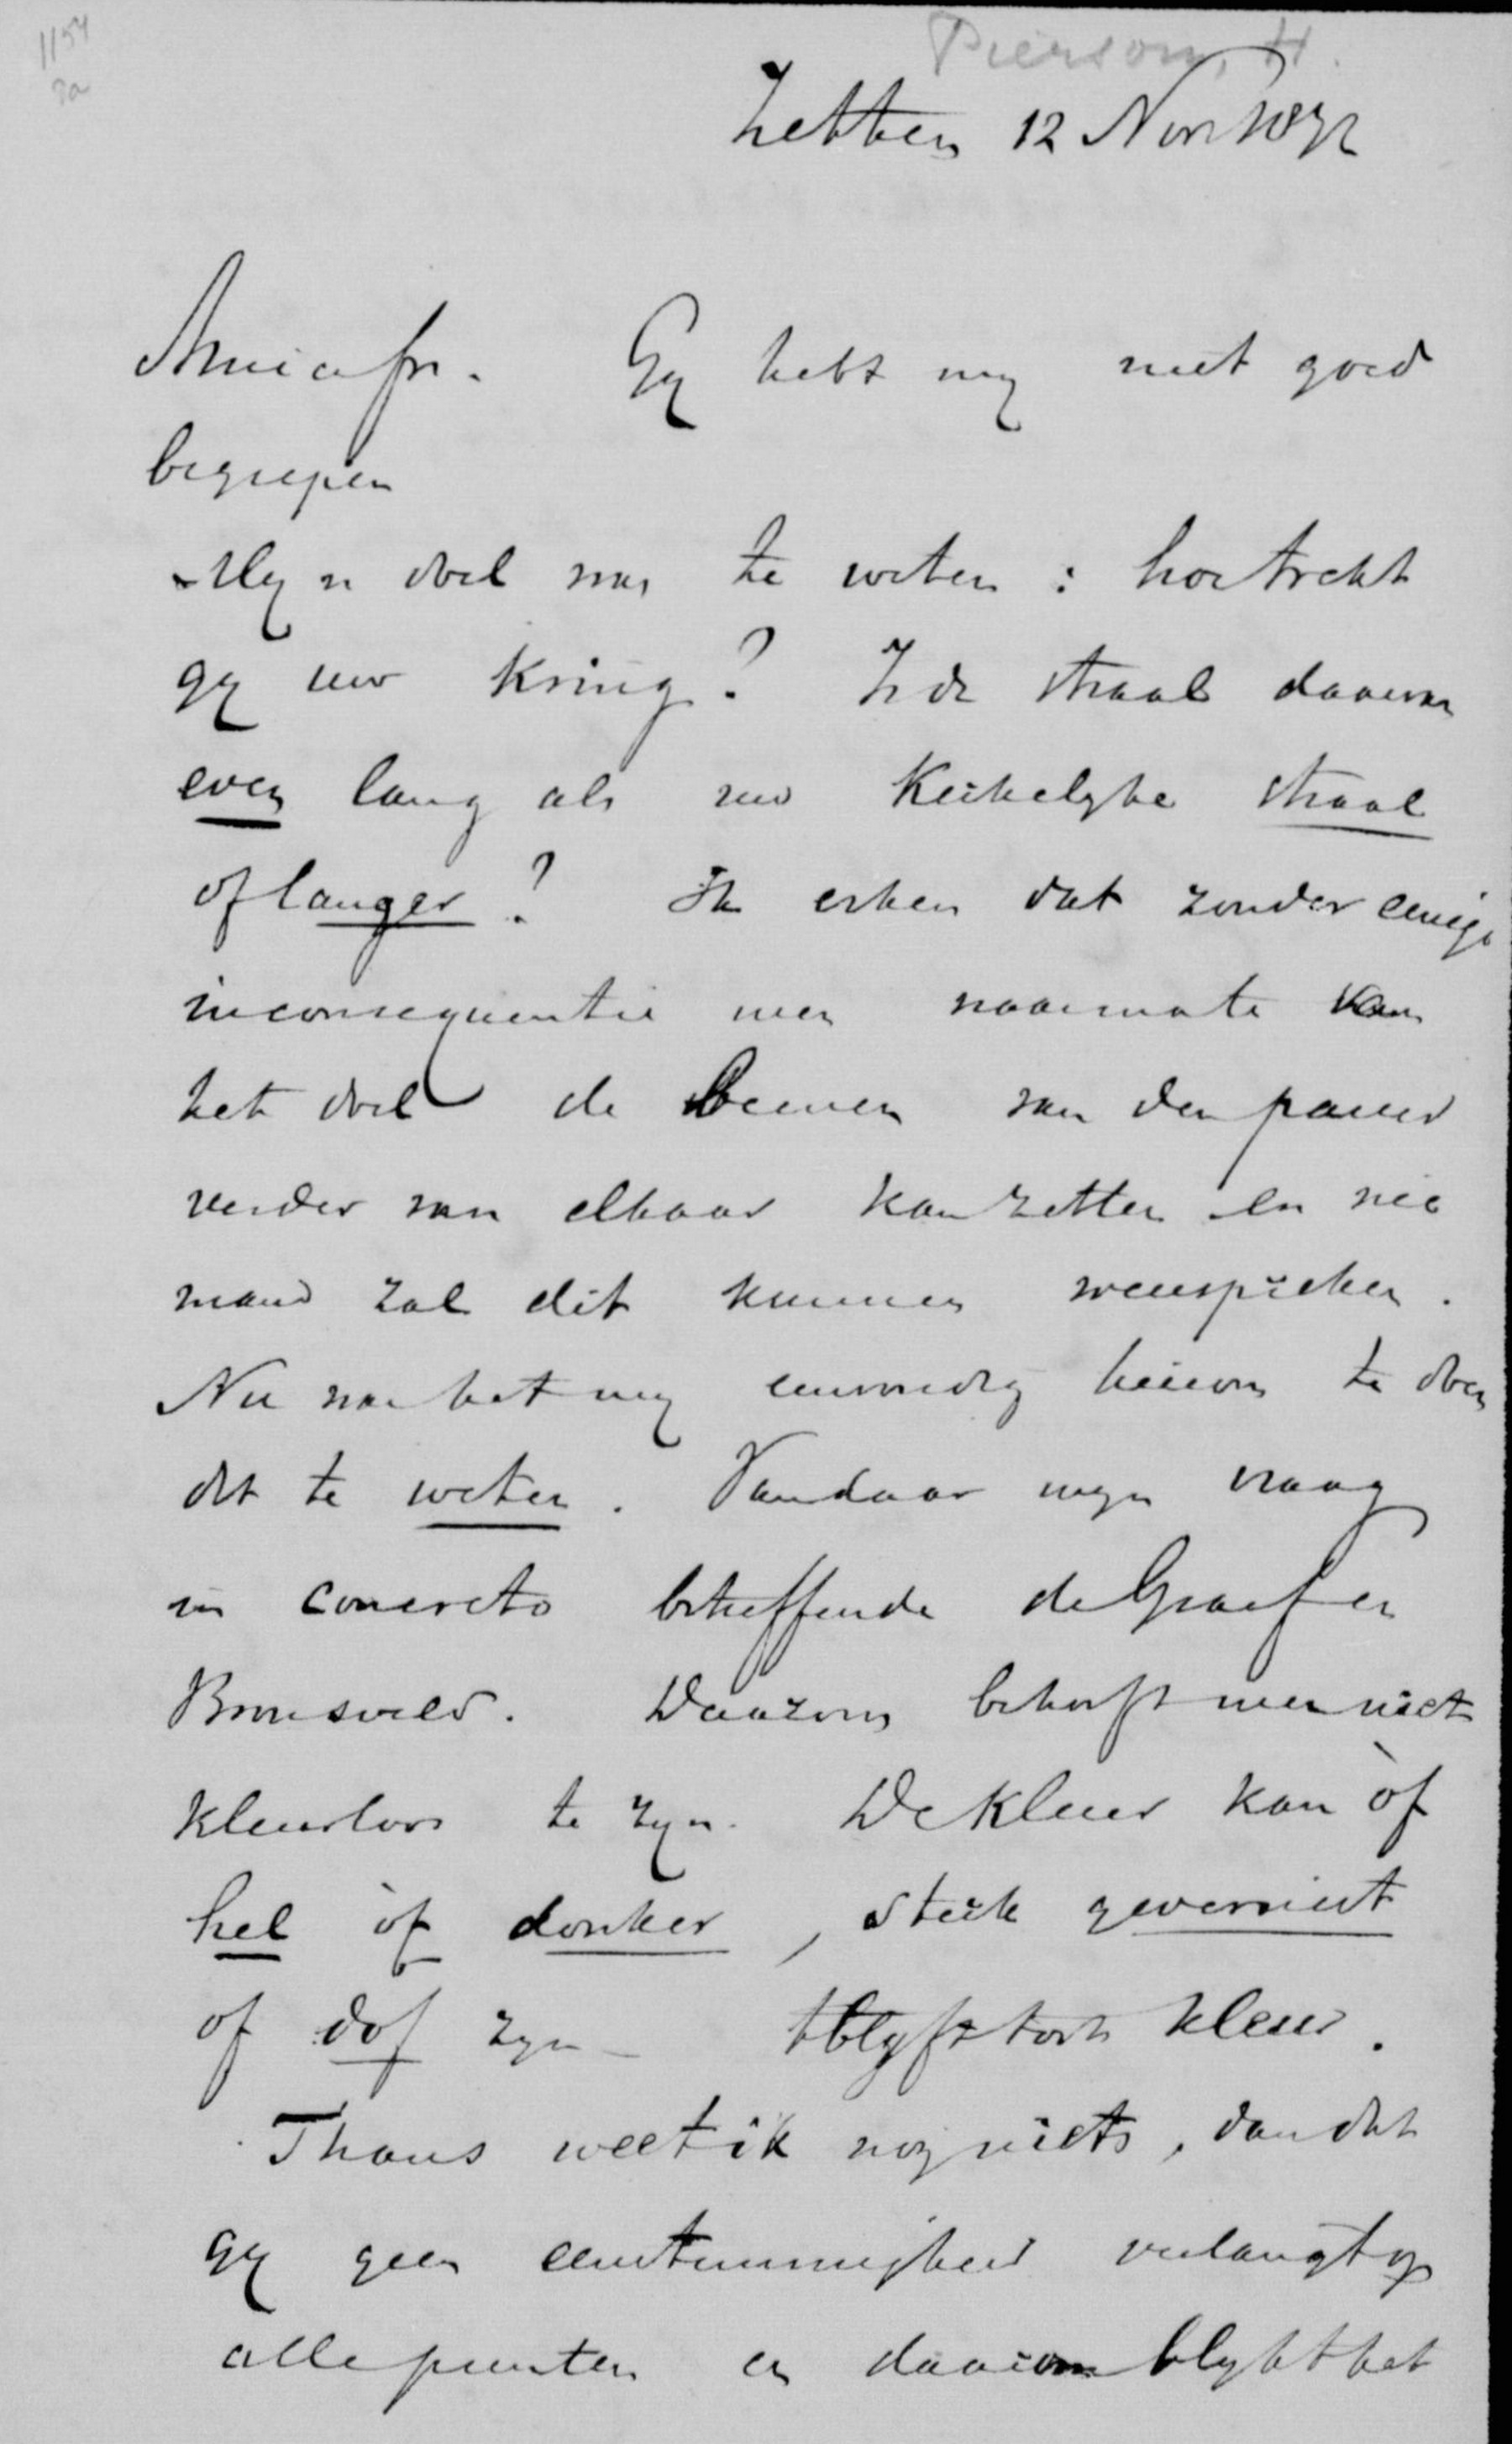 1154
2a
Pierson, H.
Zetten 12 Nov 1872
Amice fr. Gy hebt my niet goed
begrepen
Myn doel was te weten: hoe trekt
gy uw kring? Is de straal daarvan
even lang als uw Kerkelyke straal
of langer? Ik erken dat zonder eenige
inconsequentie men naarmate van
het doel de beenen van den passer
verder van elkaar kan zetten en nie
mand zal dit kunnen weerspreken.
Nu was het my eenvoudig hierom te doen
dit te weten. Vandaar myn vraag
in concreto betreffende de Graaf en
Bronsveld. Daarom behoeft men niet
kleurloos te zyn. De kleur kan òf
hel òf donker, sterk gevernist
of dof zyn – 't blyft toch kleur.
Thans weet ik nog niets, dan dat
gy geen eenstemmigheid verlangt op
alle punten en daarom blykt het